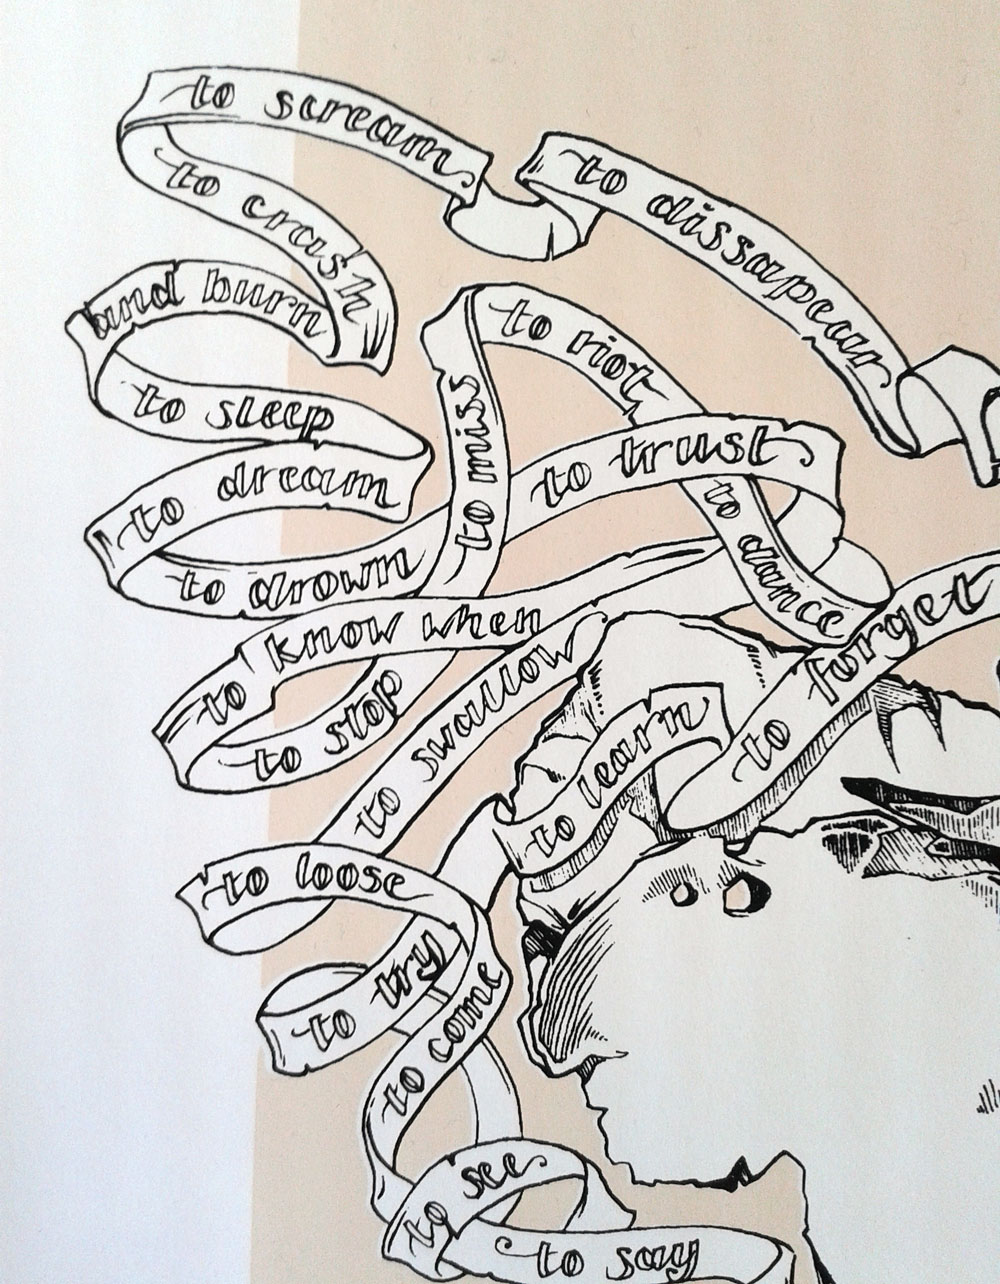 to scream
to crash
and burn
to sleep
to dream
to drown
to trust
to dissapear
to riot
to miss
to dance
to know when
to stop
to swallow
to learn
to forget
to loose
to try
to come
to see
to say